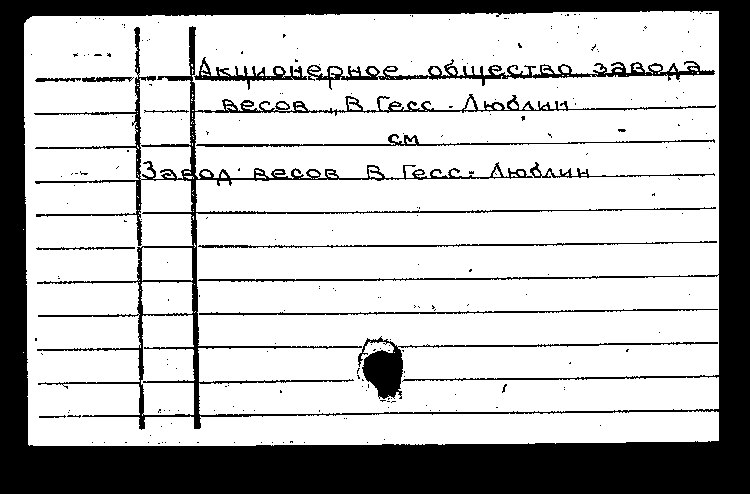 Акционерное общество завода
весов „В Гесс - Люблин
см
Завод весов В. Гесс - Люблин